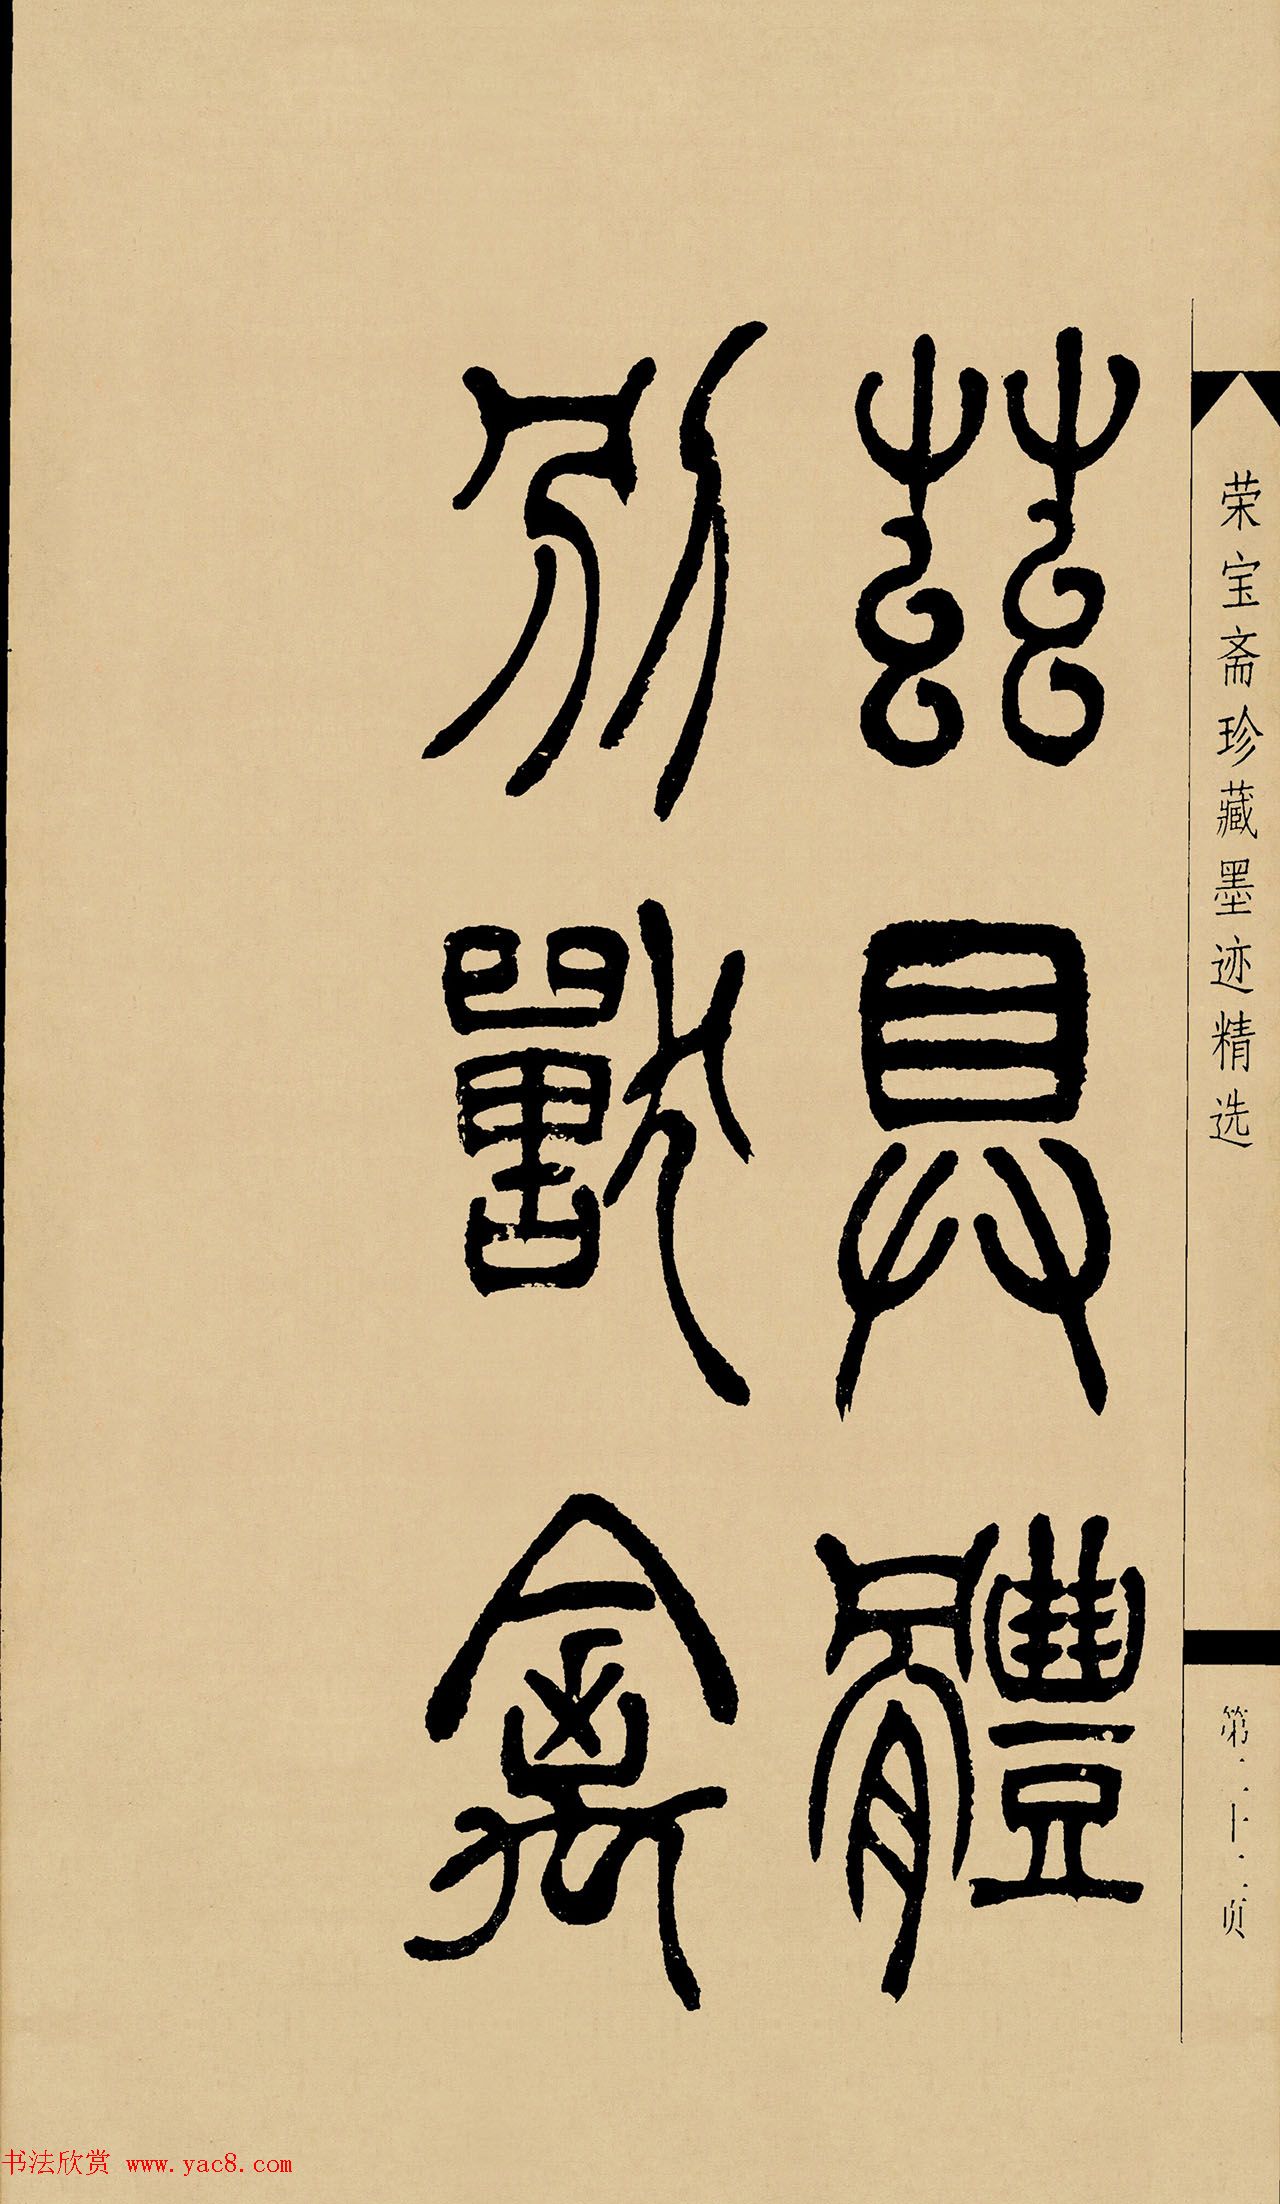 荣宝斋珍藏墨迹精选
第二十二页
茲具體
別獸禽
书法欣赏 www.yac8.com